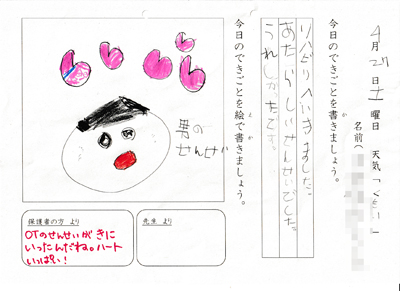 4月27日土曜日 天気「くもり」
名前(
今日のできごとを書きましょう。
リハビリへいきました。
あたらしいせんせいでした。
うれしかったです。
今日のできごとを絵で書きましょう。
男の
せんせい
保護者の方 より
OTのせんせいがきに
いったんだね。ハート
いっぱい!
先生 より